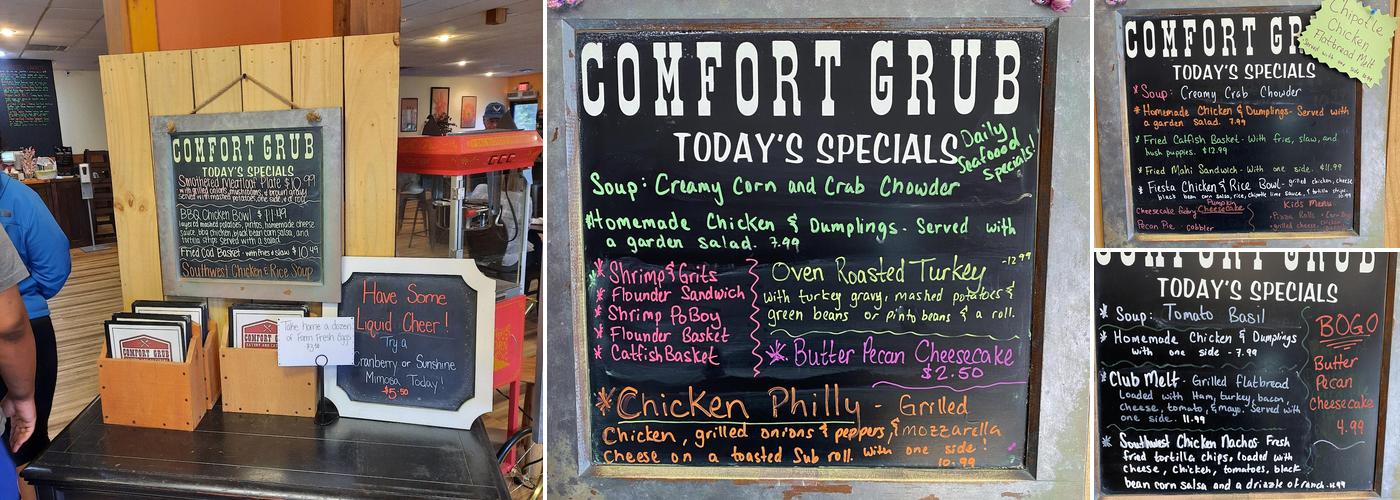 COMFORT GRUB
TODAY'S SPECIALS
Smothered Meatloaf Plate $10.99
with grilled onions, mushrooms, & brown gravy
served with mashed potatoes, one side, & a roll
BBQ Chicken Bowl $11.49
layered mashed potatoes, pintos, homemade cheese
sauce, bbq chicken, black bean corn salsa, and
tortilla strips served with a salad.
Fried Cod Basket - with fries & slaw $10.49
Southwest Chicken & Rice Soup
COMFORT GRUB
COMFORT G
Take home a dozen
of Farm Fresh Eggs
$3.50
Have Some
Liquid Cheer!
Try a
Cranberry or Sunshine
Mimosa Today!
$5.50
COMFORT GRUB
TODAY'S SPECIALS
Daily
Seafood
Specials!
Soup: Creamy Corn and Crab Chowder
*Homemade Chicken & Dumplings- Served with
a garden salad. 7.99
* Shrimp & Grits
* Flounder Sandwich
* Shrimp PoBoy
* Flounder Basket
* Catfish Basket
Oven Roasted Turkey -12.99
with turkey gravy, mashed potatoes &
green beans or pinto beans & a roll.
* Butter Pecan Cheesecake
$2.50
*Chicken Philly - Grilled
Chicken, grilled onions & peppers, & mozzarella
cheese on a toasted Sub roll. with one side!
10.99
COMFORT GR
TODAY'S SPECIALS
Chipotle
Chicken
Flatbread Melt
Served with one side
* Soup: Creamy Crab Chowder
* Homemade Chicken & Dumplings- Served with
a garden salad. 7.99
* Fried Catfish Basket- With fries, slaw, and
hush puppies. $12.99
* Fried Mahi Sandwich- With one side. $11.99
* Fiesta Chicken & Rice Bowl- grilled chicken, cheese
black bean corn salsa, rice, chipotle lime sauce, & tortilla strips
Cheesecake Factory Pumpkin Cheesecake
Pecan Pie - cobbler
Kids Menu
- Pizza Rolls - Corn Dog
- grilled cheese
COMFORT GRUB
TODAY'S SPECIALS
* Soup: Tomato Basil
* Homemade Chicken & Dumplings
with one side - 7.99
*Club Melt- Grilled flatbread
Loaded with Ham, turkey, bacon,
cheese, tomato, & mayo. Served with
one side. 11.99
* Southwest Chicken Nachos Fresh
fried tortilla chips, loaded with
cheese, chicken, tomatoes, black
bean corn salsa and a drizzle of ranch.
BOGO
Butter
Pecan
Cheesecake
4.99